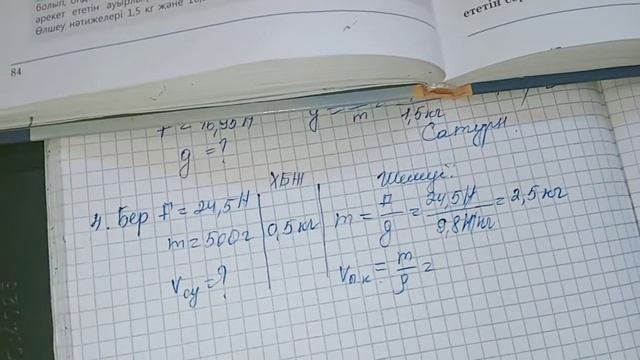 әрекет ететін ауырлық
Өлшеу нәтижелері 1,5 кг және
84
F = 16,95 Н
g = ?
y = m = 1,5 кг
Сатурн.
4. Бер F = 24,5 Н
m = 500 г
Vсу = ?
ХБЖ
0,5 кг
Шешуі:
m = F/g = 24,5 Н/9,8 Н/кг = 2,5 кг
V = m/ρ =